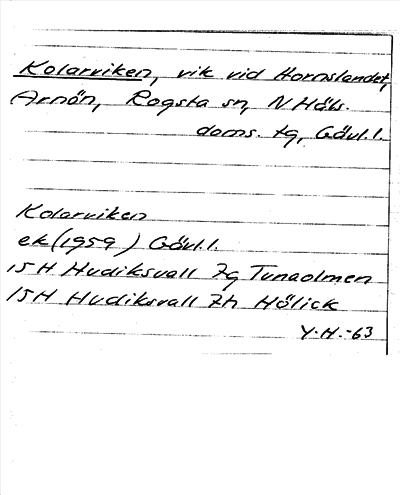 Kolarviken, vik vid Hornslandet,
Arnön, Rogsta sn, N Häls.
doms. tg, Gävl.l.
Kolarviken
ek (1959) Gävl.l.
15H Hudiksvall 7g Tunaolmen
15H Hudiksvall 7h Hölick
Y.H.-63